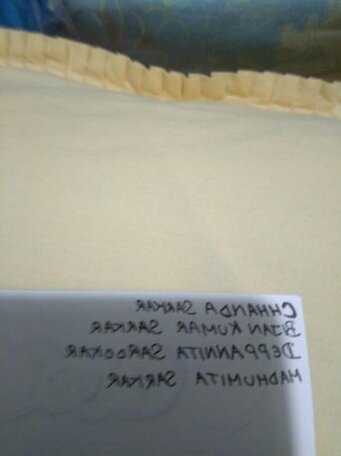 CHHANDA SARKAR
BIJAN KUMAR SARKAR
DEPPANNITA SAROOKAR
MADHUMITA SARKAR